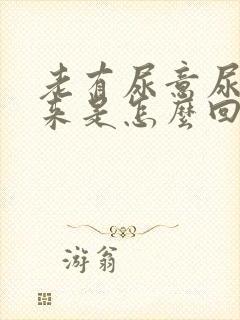 老有尿意尿
来是怎麼回
游翁